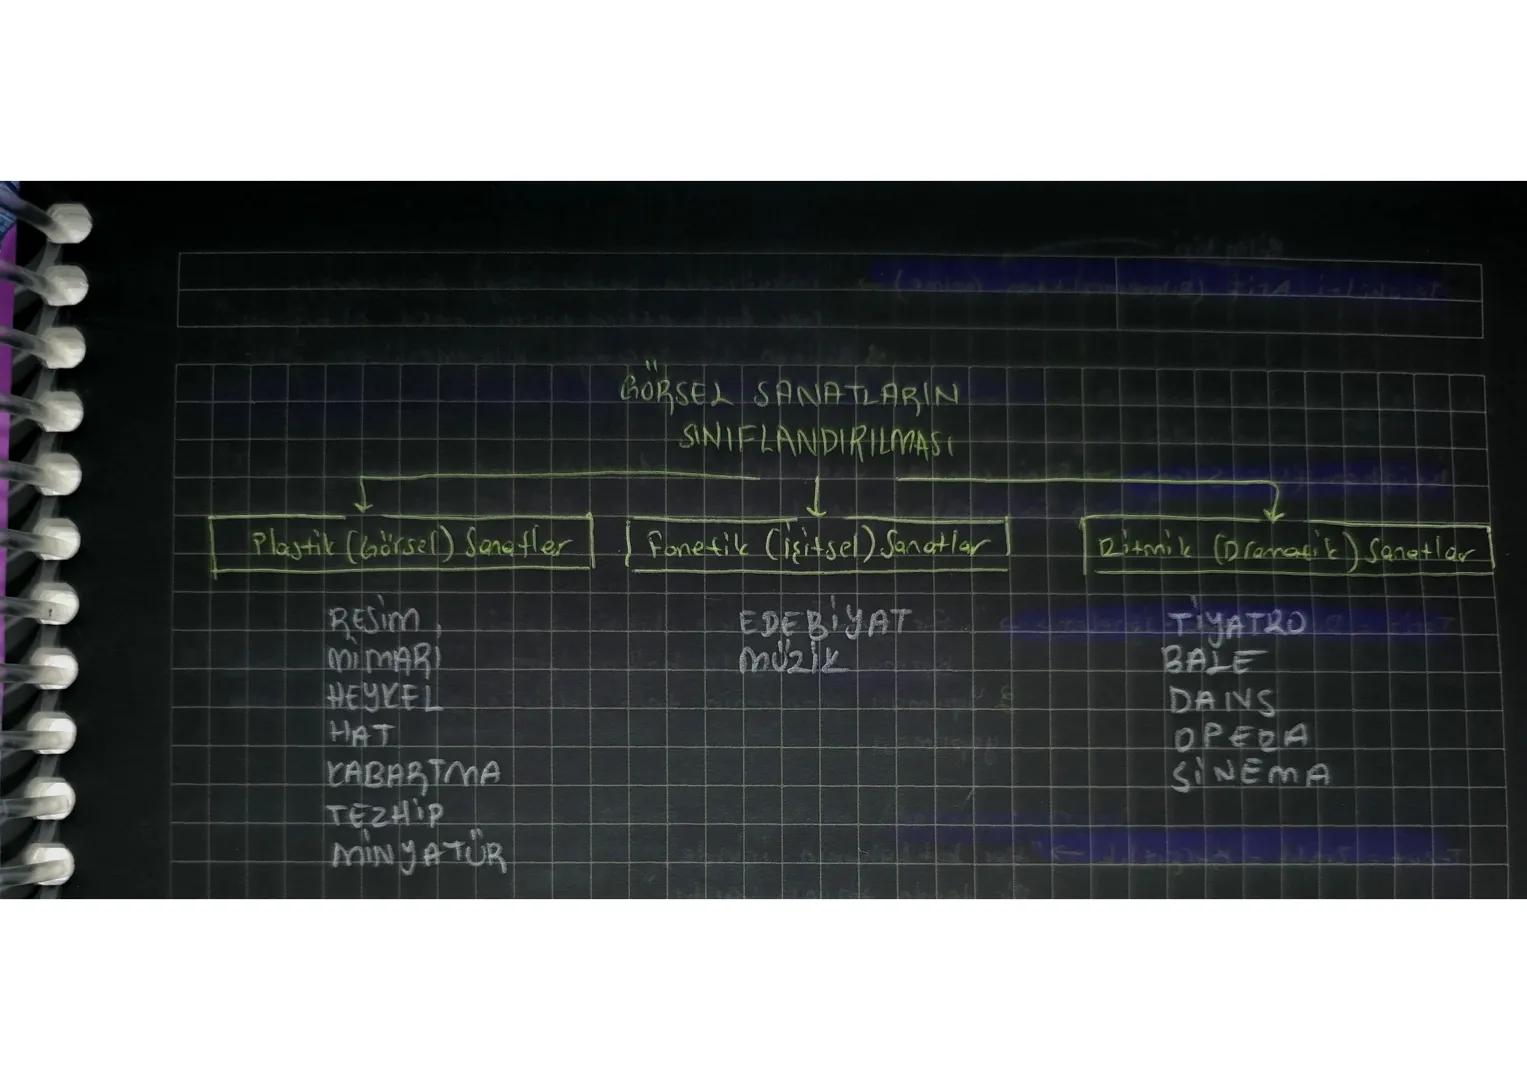 GÖRSEL SANATLARIN
SINIFLANDIRILMASI
Plastik (Görsel) Sanatlar
Fonetik (İşitsel) Sanatlar
Ritmik (Dramatik) Sanatlar
RESİM
MİMARİ
HEYKEL
HAT
KABARTMA
TEZHİP
MİNYATÜR
EDEBİYAT
MÜZİK
TİYATRO
BALE
DANS
OPERA
SİNEMA